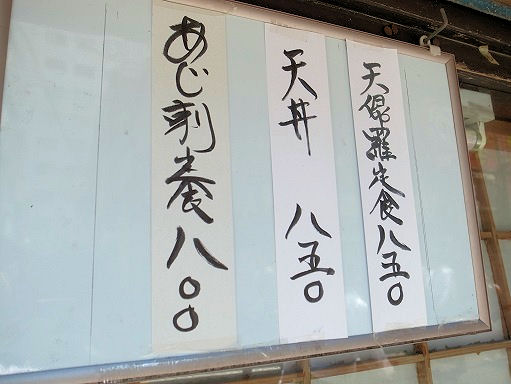 天保羅定食八五〇
天丼 八五〇
あじ刺定食八〇〇